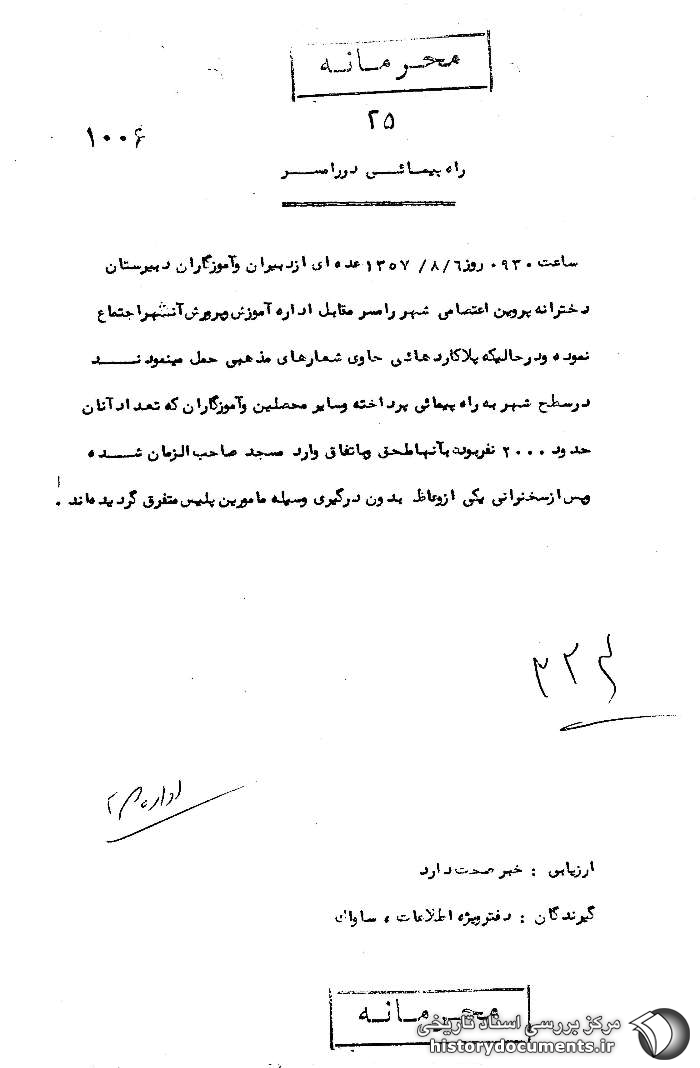 محرمانه
۲۵
۱۰۰۶
راه پیمائی دررامسر
ساعت ۰۹۳۰ روز ۱۳۵۷/۸/۶ عده ای ازدبیران وآموزگاران دبیرستان
دخترانه پروین اعتصامی شهر رامسر مقابل اداره آموزش وپرورش آنشهراجتماع
نموده ودرحالیکه پلاکارد هائی حاوی شعارهای مذهبی حمل مینمودند
درسطح شهر به راه پیمائی پرداخته وسایر محصلین وآموزگاران که تعداد آنان
حدود ۲۰۰۰ نفربوده بآنهاملحق وباتفاق وارد مسجد صاحب الزمان شده
وپس ازسخنرانی یکی ازوعاظ بدون درگیری وسیله مامورین پلیس متفرق گردیده اند .
۳۲۳
اداره ۲
ارزیابی : خبر صحت دارد
گیرندگان : دفترویژه اطلاعات ، ساواک
محرمانه
مرکز بررسی اسناد تاریخی
historydocuments.ir